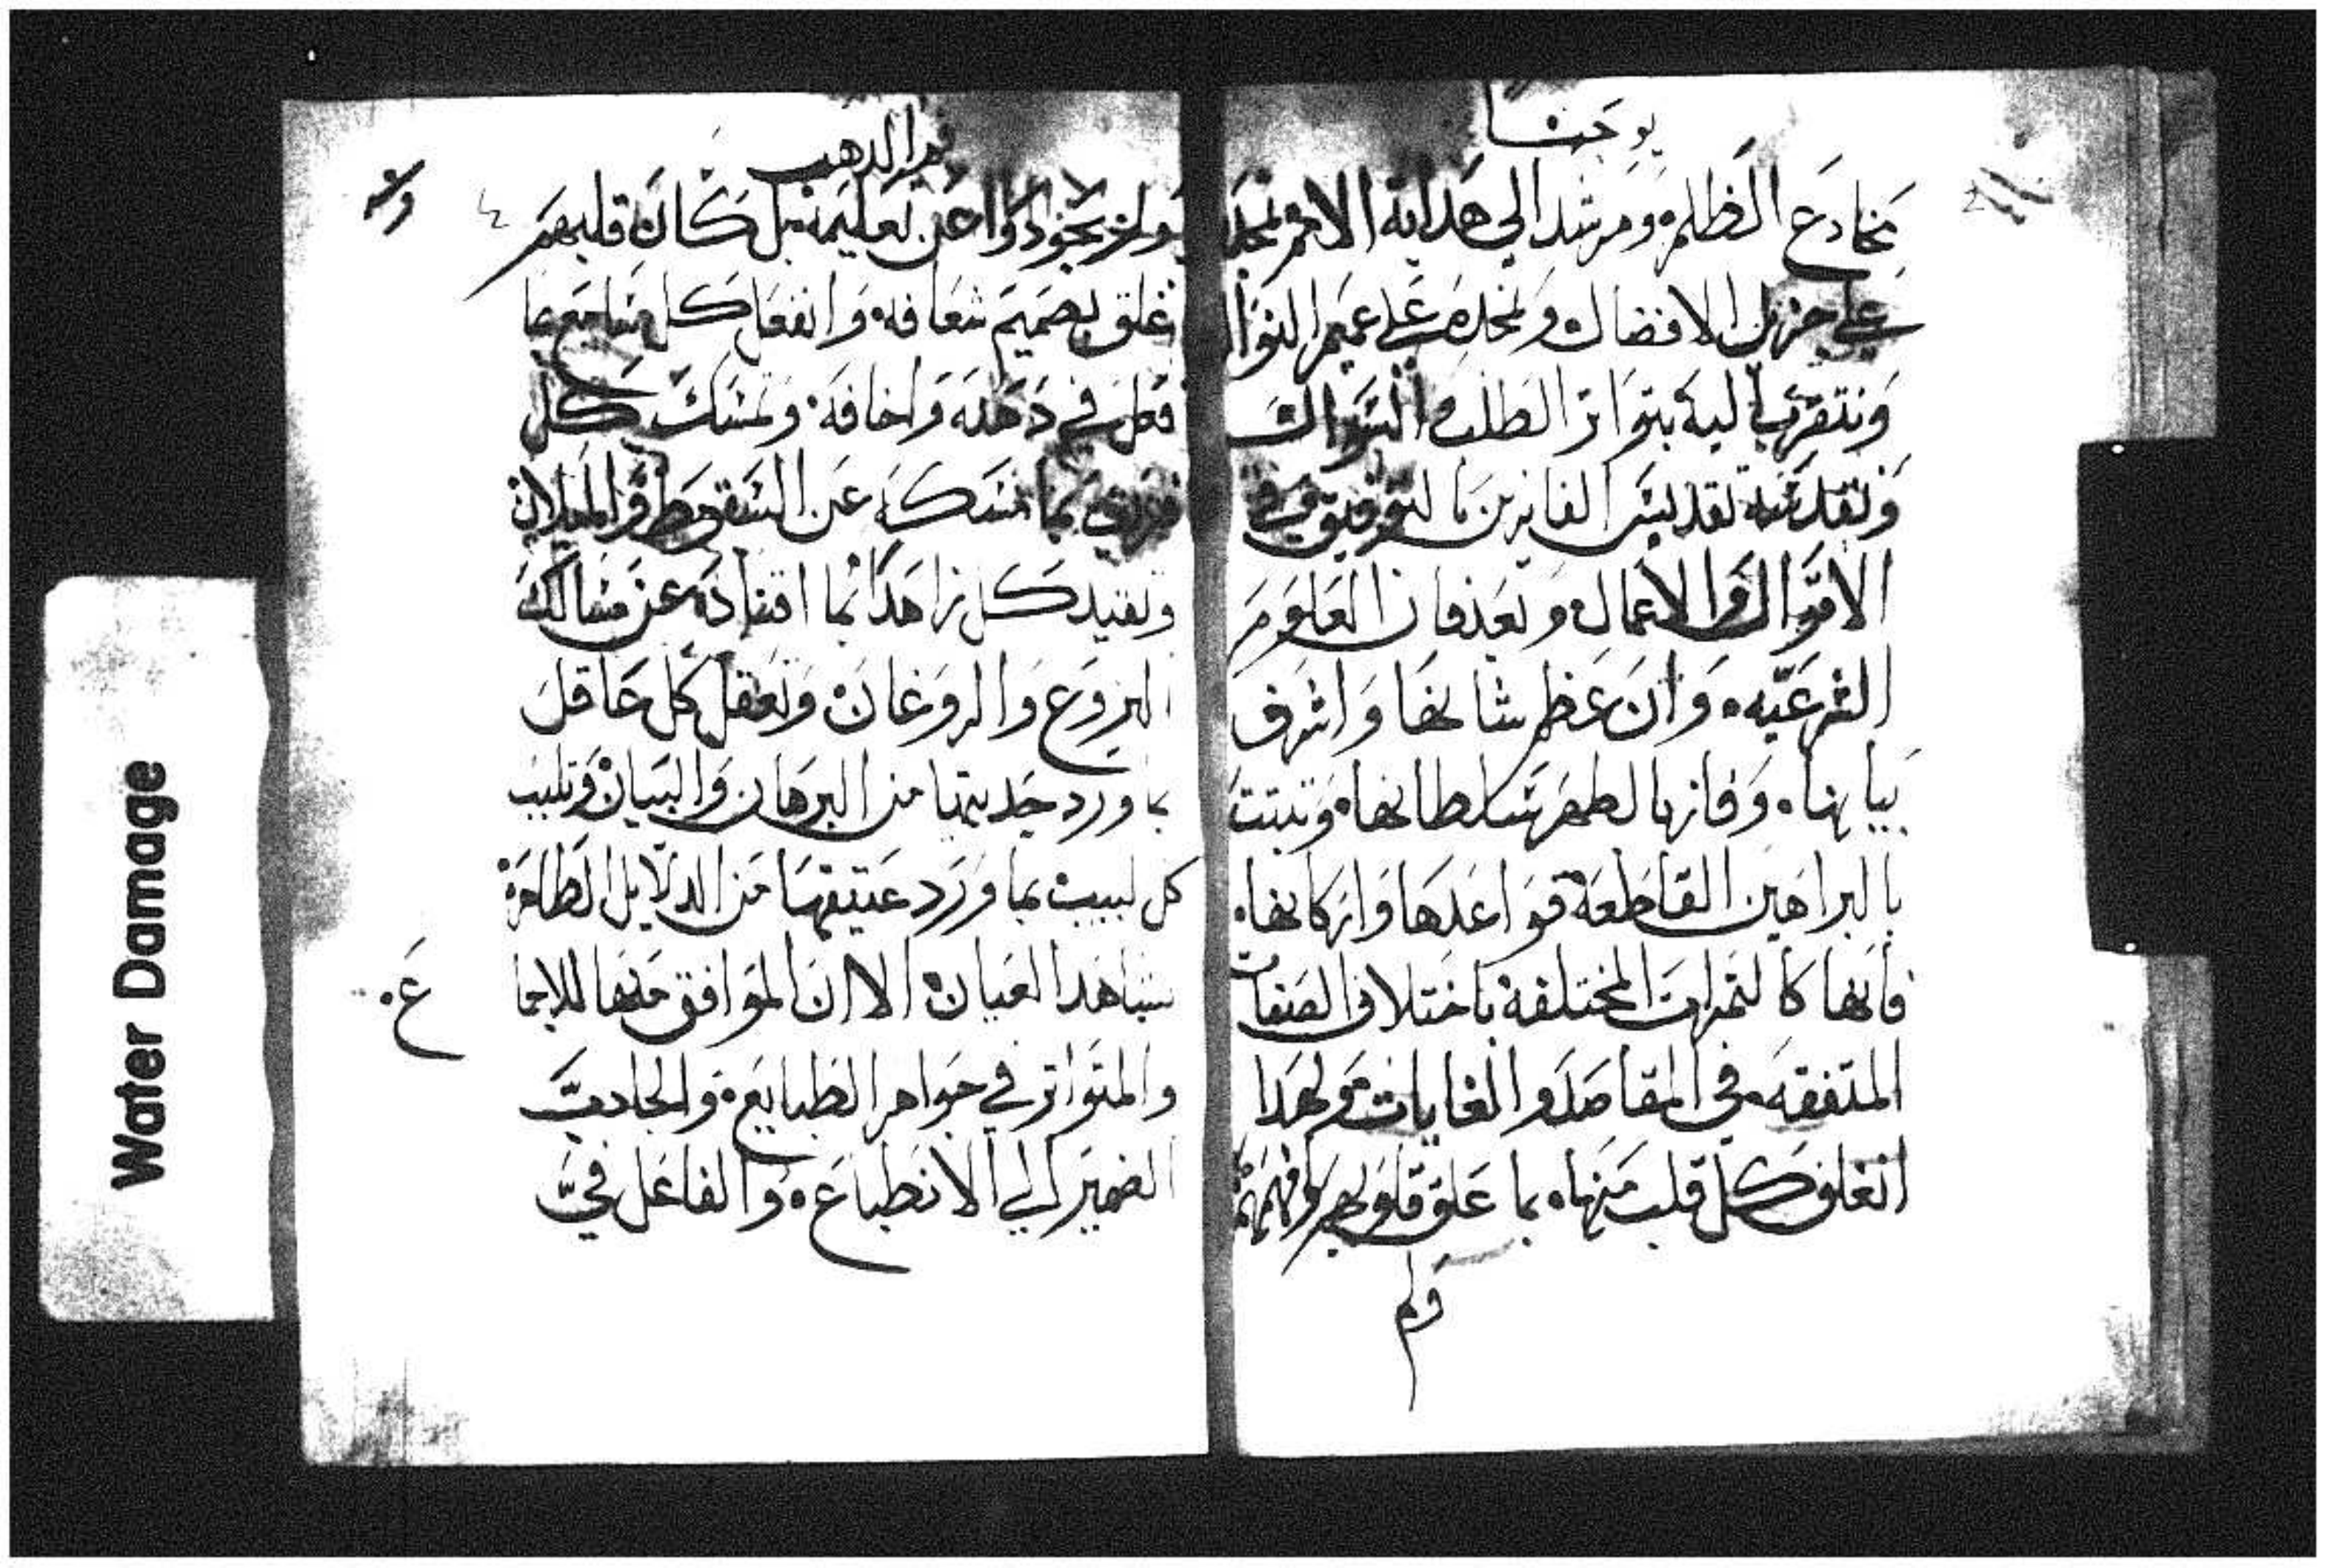 يوحنا
مخادع الظلم ومرشدا الي هداية الامم نحمده
علي جزيل الافضال ونمجده علي عميم النوال
ونتقرب اليه بتواتر الطلب والسوال
ونقدسه تقديس الفايزين بالتوفيق في
الاقوال والاعمال وبعد فان العلوم
الشرعيه وان عظم شانها واشرف
بيانها وفاز بالطهر سلطانها وتبتت
بالبراهين القاطعة قواعدها واركانها
فانها كالثمرات المختلفة باختلاف الصفات
المتفقه في المقاصد والغايات ولهدا
انغلف كل قلب منها بما علق قلوبهم
ولم
فم الدهب
ولم عن تعليمه بل كان قلبهم
غلق بصميم شغافه وانفعل كل سامع بما
في دهنه واخافه وتمسك كل
بما مسكه عن السقوط والميلان
وتقيد كل زاهد بما اقتاده عن مسالك
النزوع والروغان وتعقل كل عاقل
بما ورد حديتها من البرهان والبيان وتلبب
كل لبيب بما ورد عتيقها من الدلايل الظاهرة
شاهد العيان الا ان الموافق منها للايما
والمتواتر في جواهر الطبايع والجادب
الضمير الي الانطباع والفاعل في
ع
Water Damage